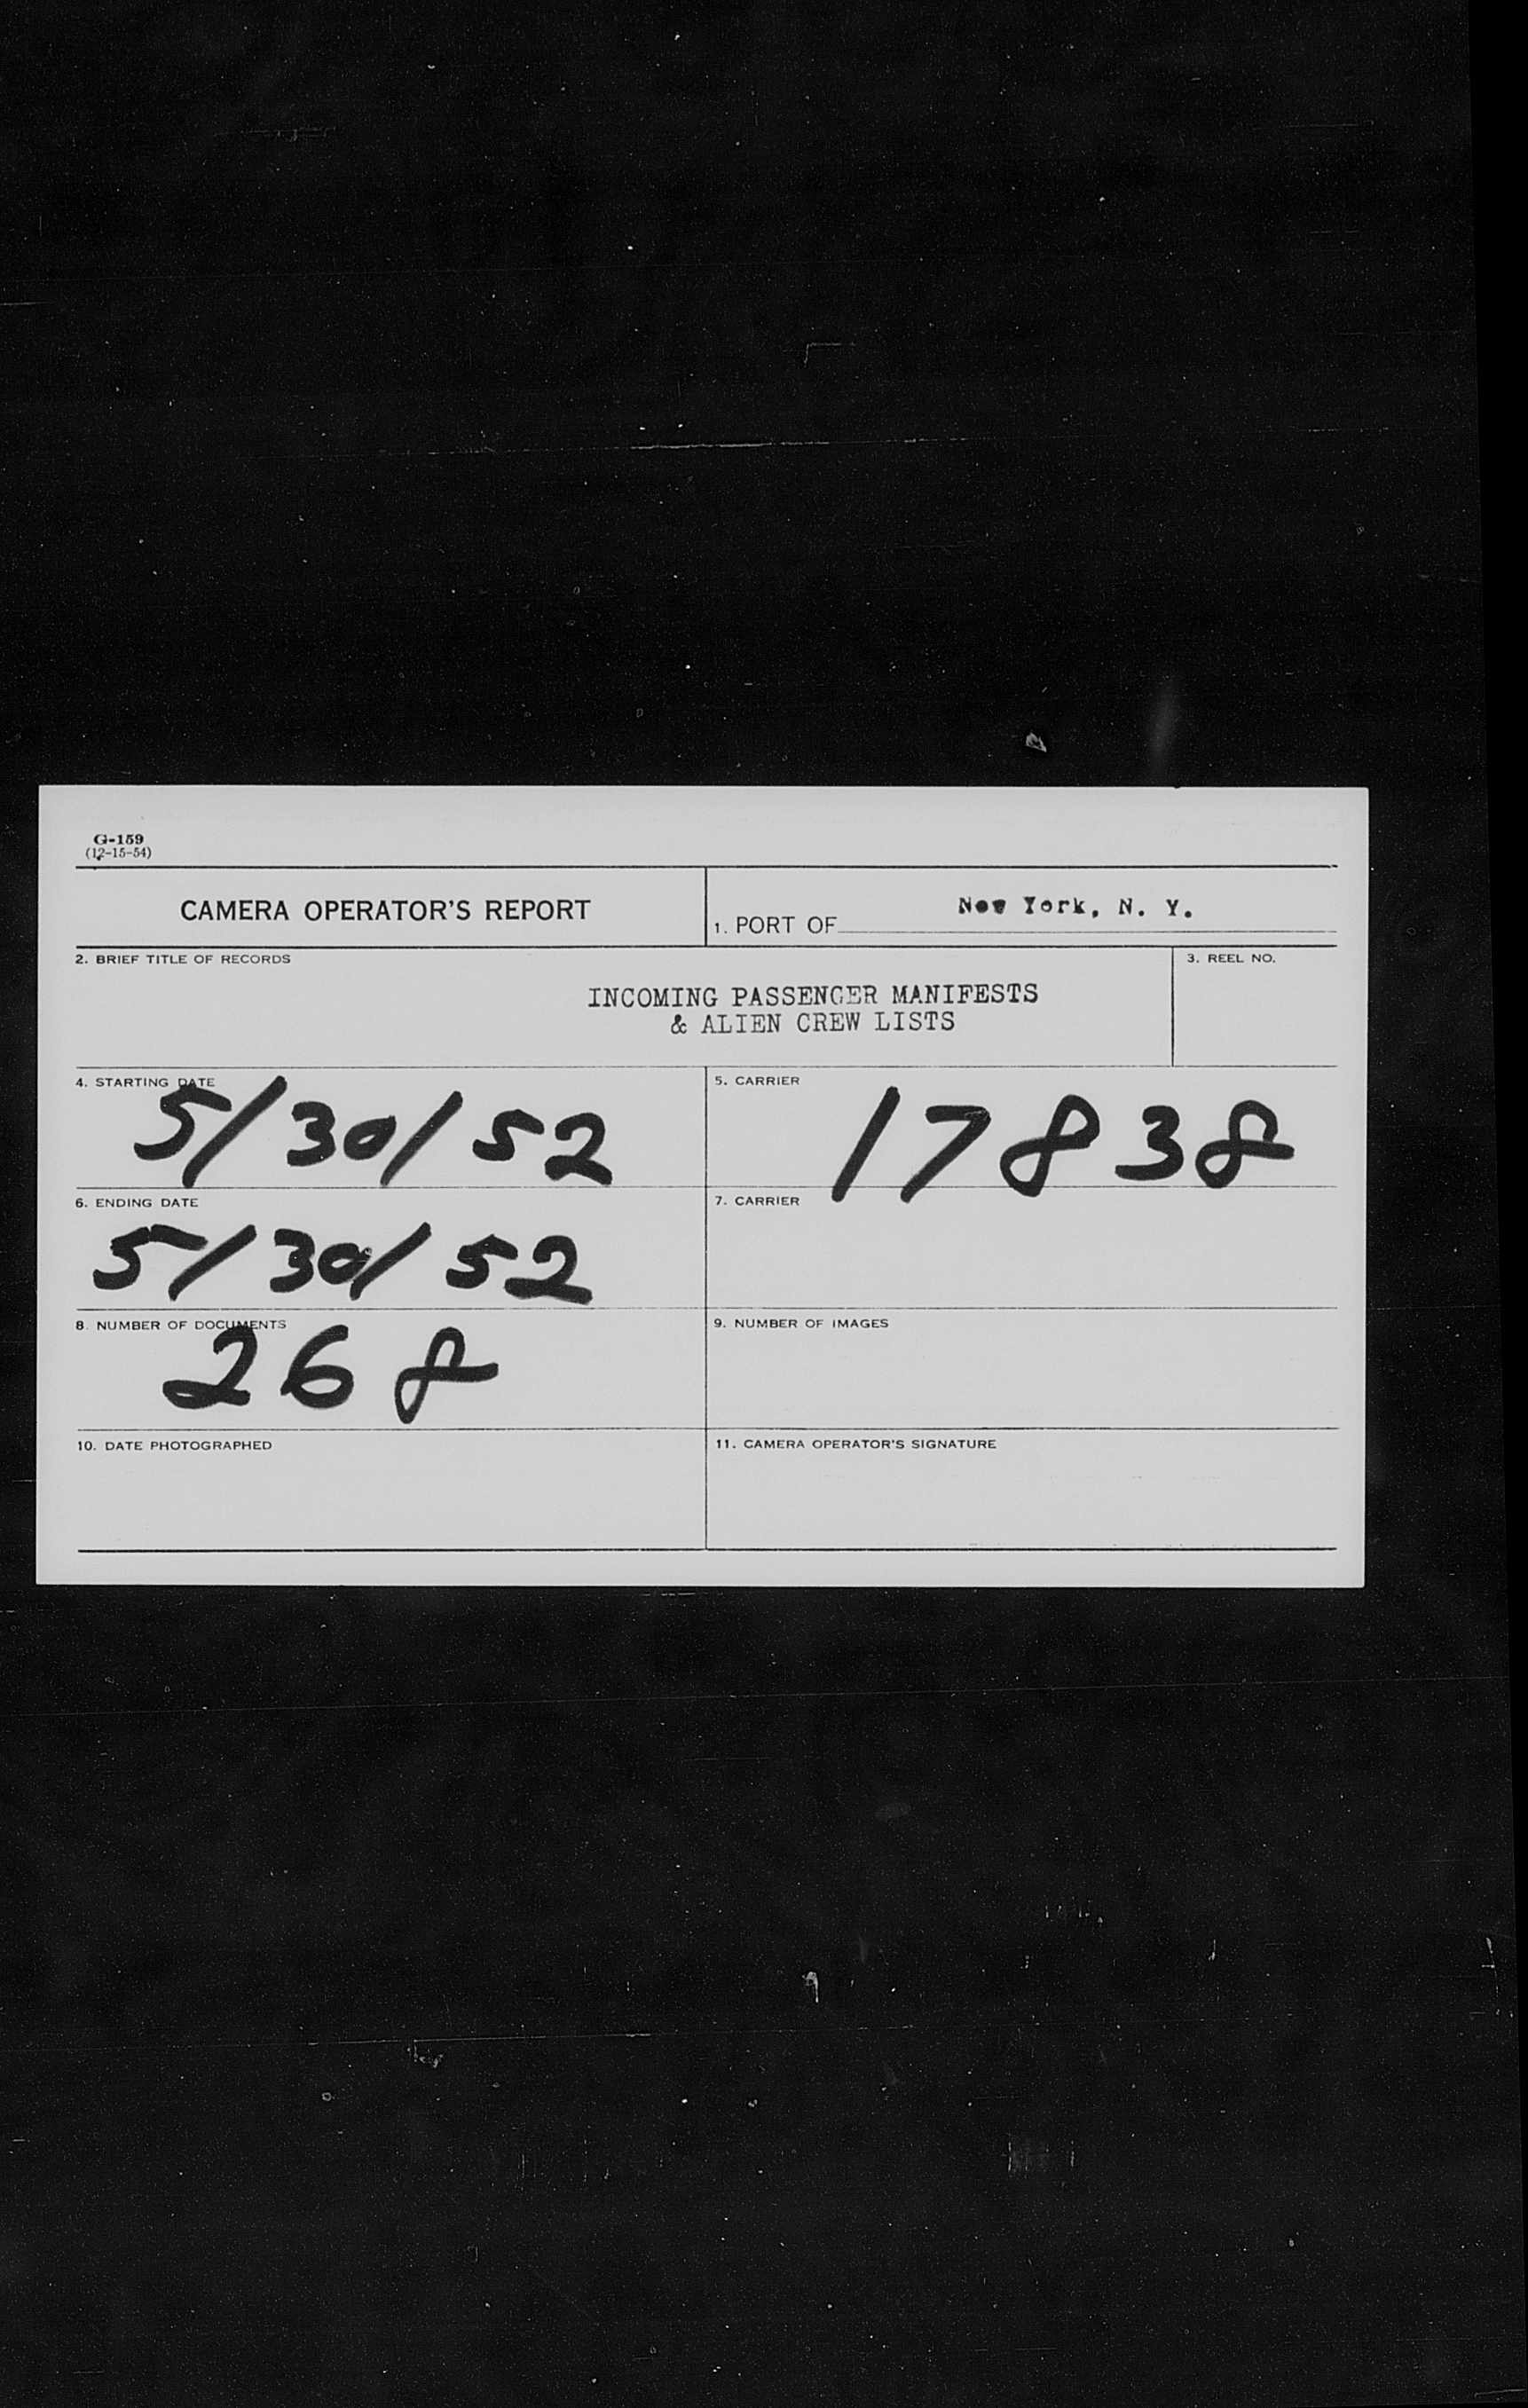 G-159
(12-15-54)
CAMERA OPERATOR'S REPORT
1. PORT OF New York, N. Y.
2. BRIEF TITLE OF RECORDS
INCOMING PASSENGER MANIFESTS
& ALIEN CREW LISTS
3. REEL NO.
4. STARTING DATE
5/30/52
5. CARRIER
17838
6. ENDING DATE
5/30/52
7. CARRIER
8. NUMBER OF DOCUMENTS
268
9. NUMBER OF IMAGES
10. DATE PHOTOGRAPHED
11. CAMERA OPERATOR'S SIGNATURE